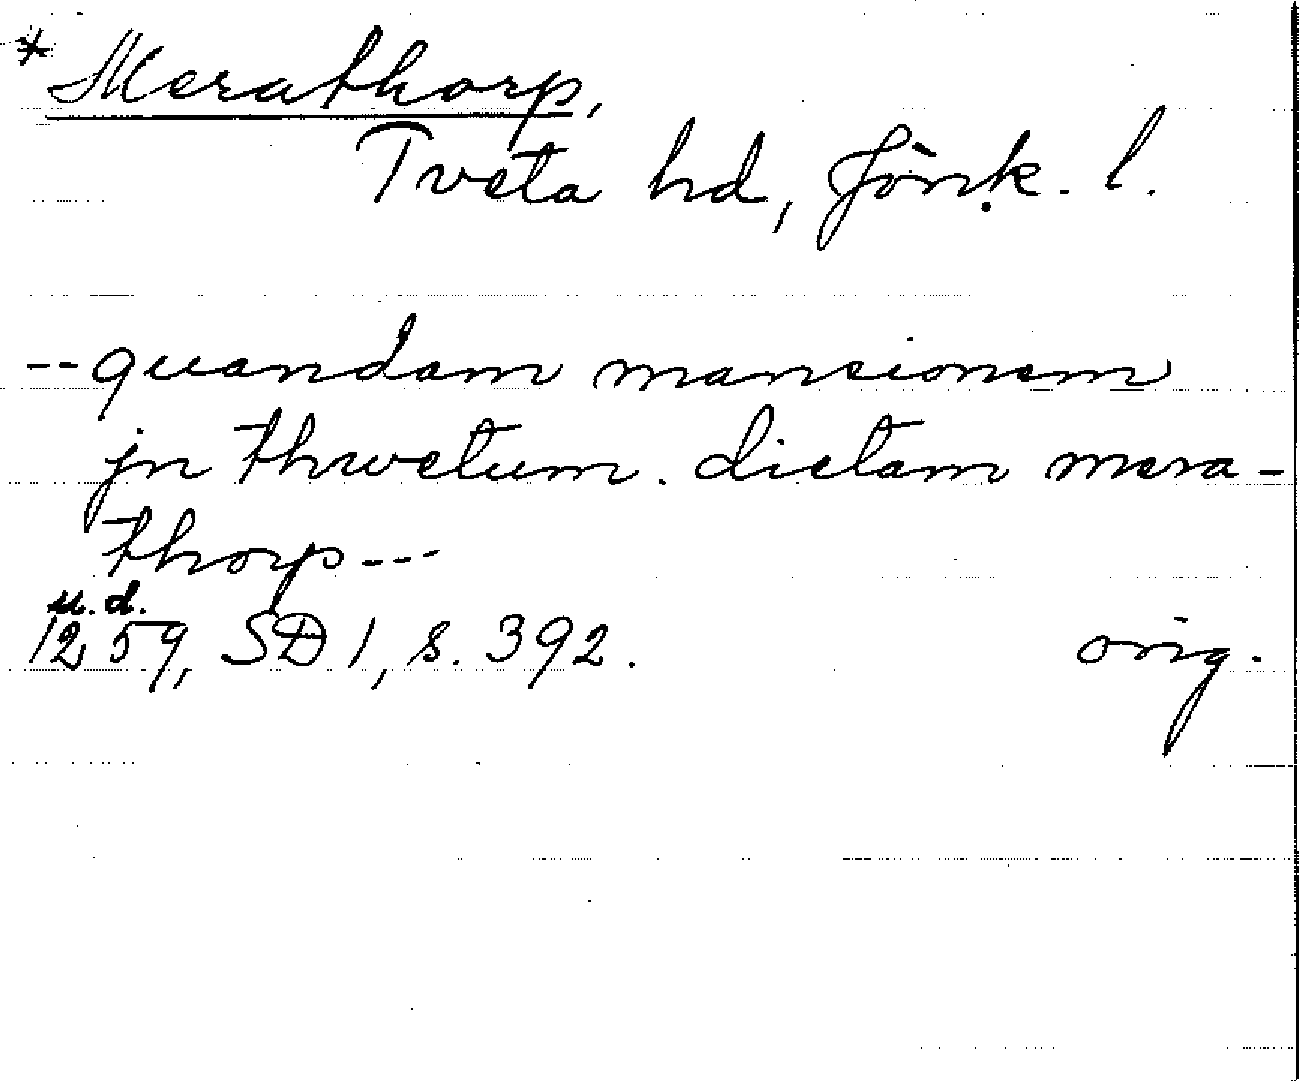 * Merathorp,
Tveta hd, Jönk. l.
-- quandam mansionem
jn thwetum. dictam mera-
thorp ---
u. d.
1259, SD 1, s. 392. orig.